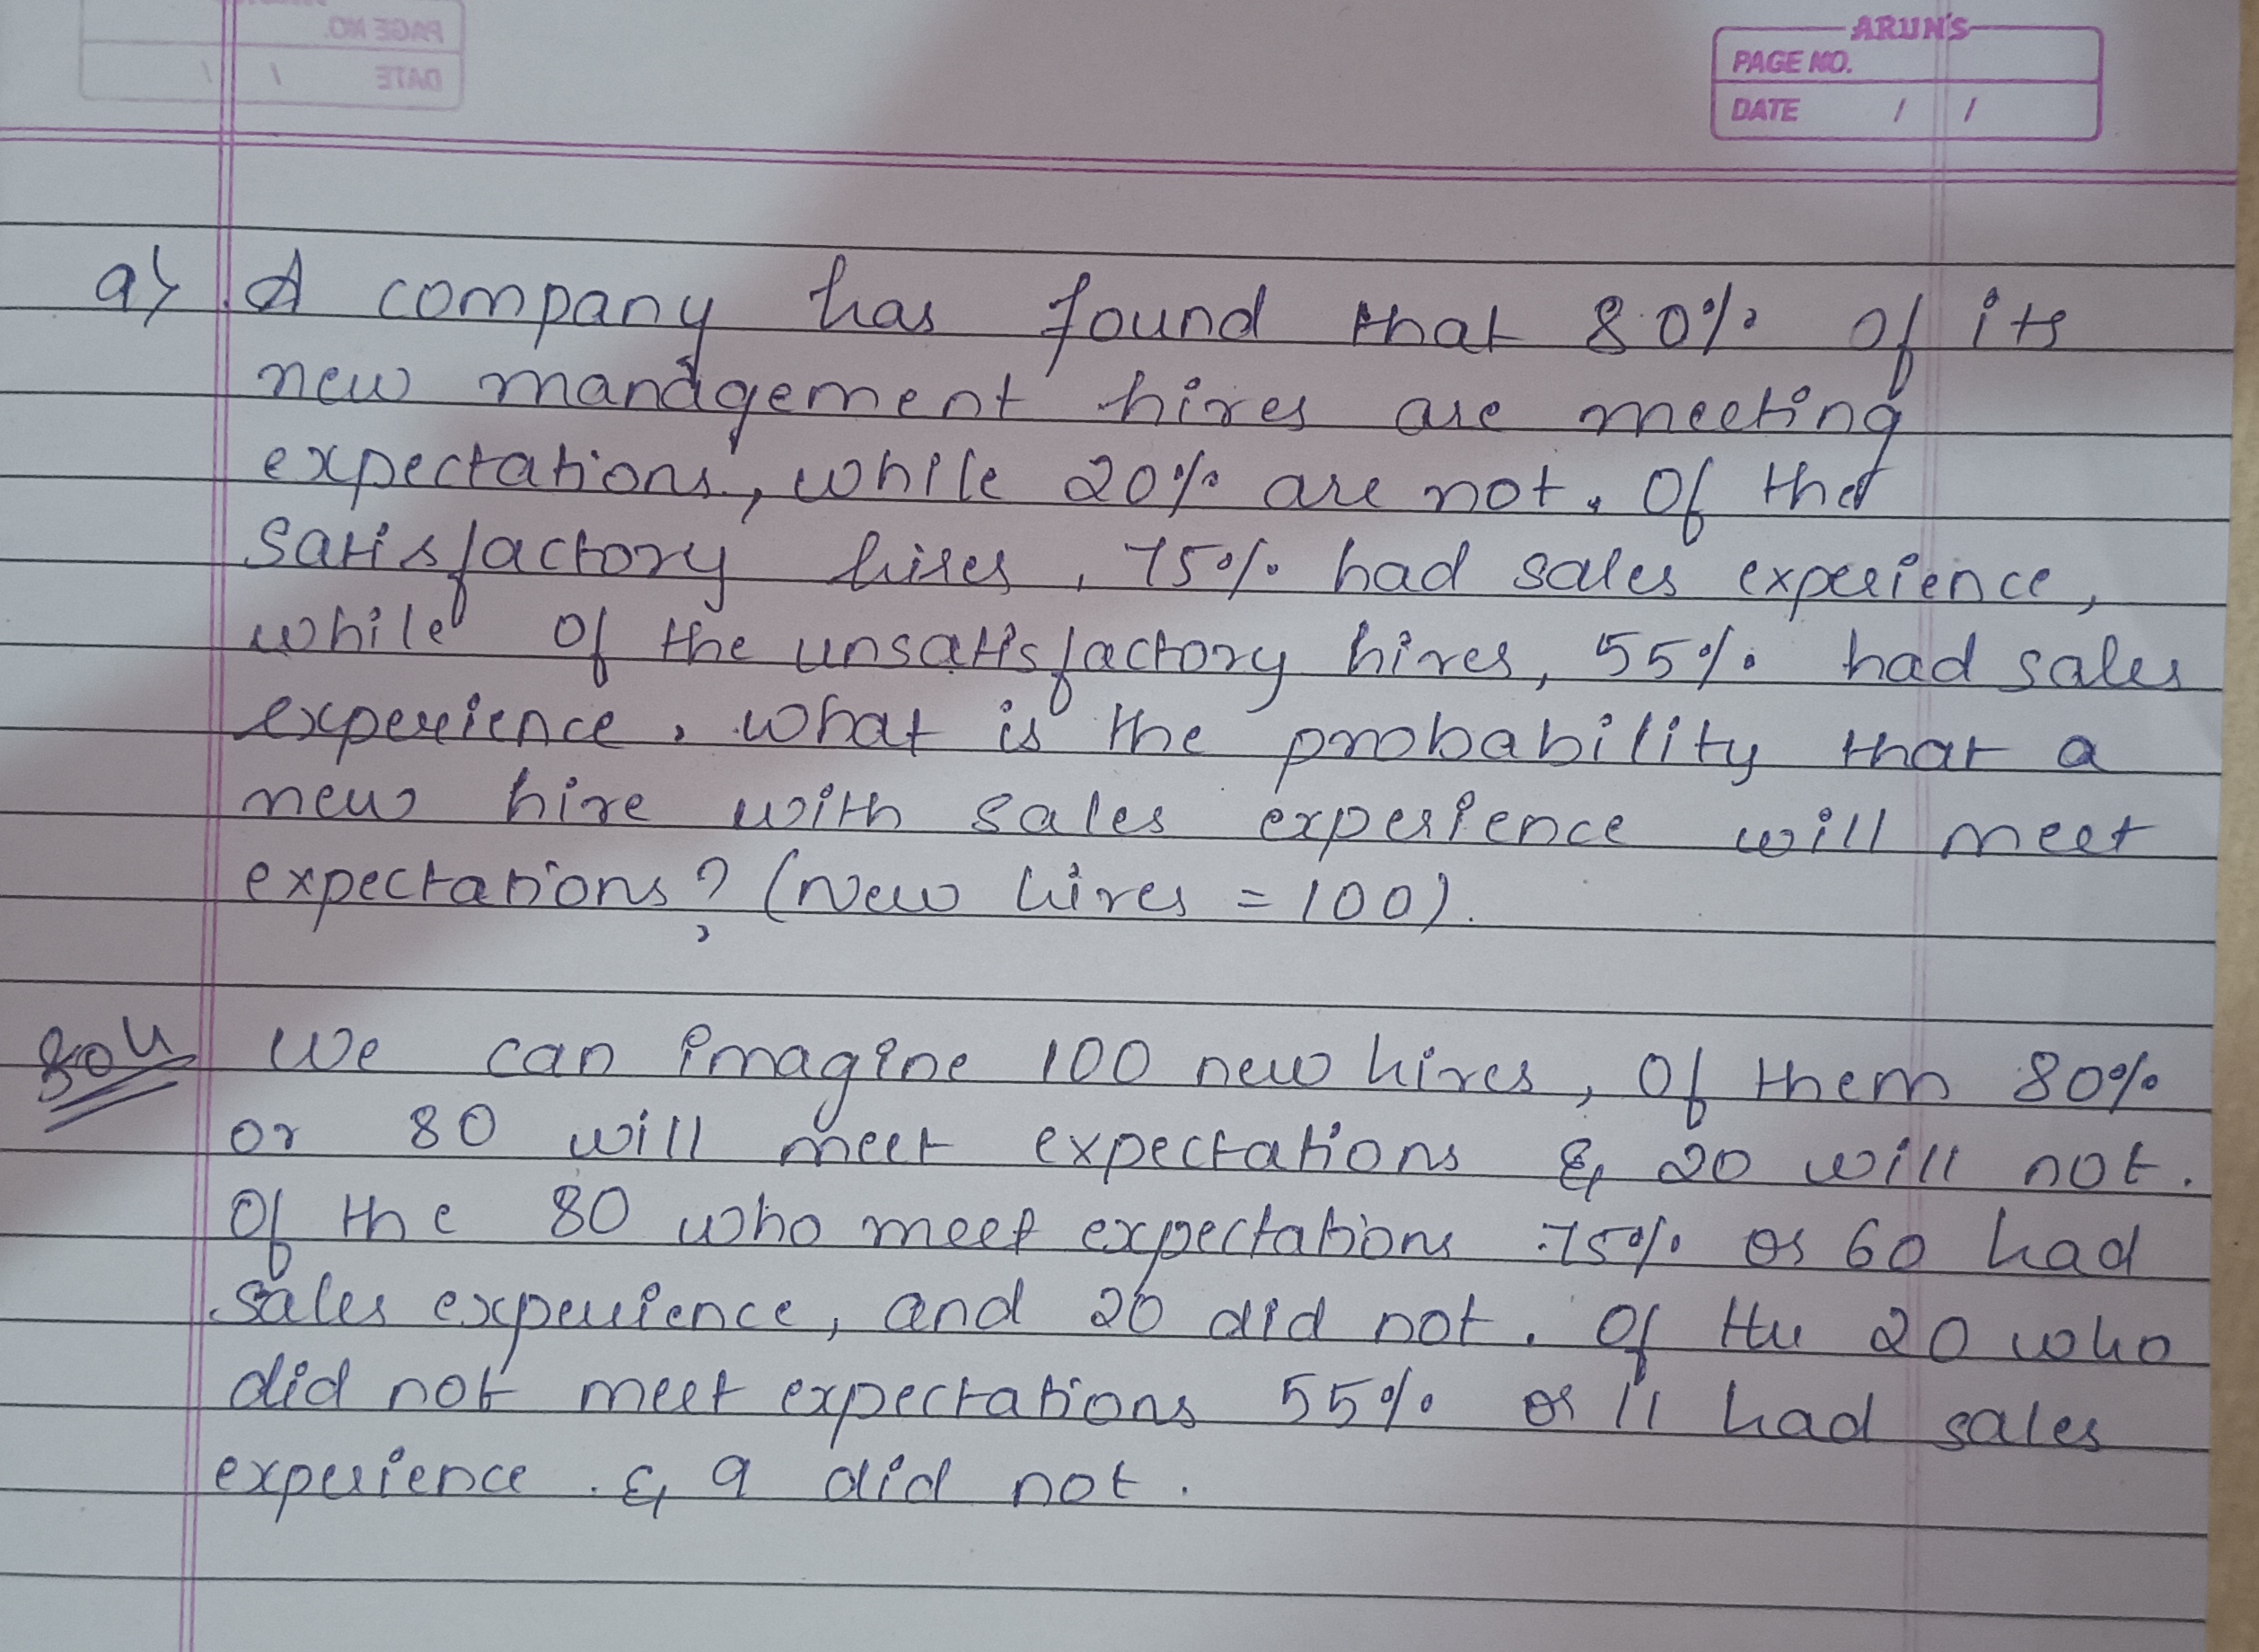 ARUN'S
PAGE NO.
DATE / /
a) A company has found that 80% of its
new management hires are meeting
expectations, while 20% are not. Of the
satisfactory hires, 75% had sales experience,
while of the unsatisfactory hires, 55% had sales
experience. what is the probability that a
new hire with sales experience will meet
expectations? (New hires = 100).
Soln We can imagine 100 new hires, Of them 80%
or 80 will meet expectations & 20 will not.
Of the 80 who meet expectations 75% or 60 had
sales experience, and 20 did not. Of the 20 who
did not meet expectations 55% or 11 had sales
experience. & 9 did not.